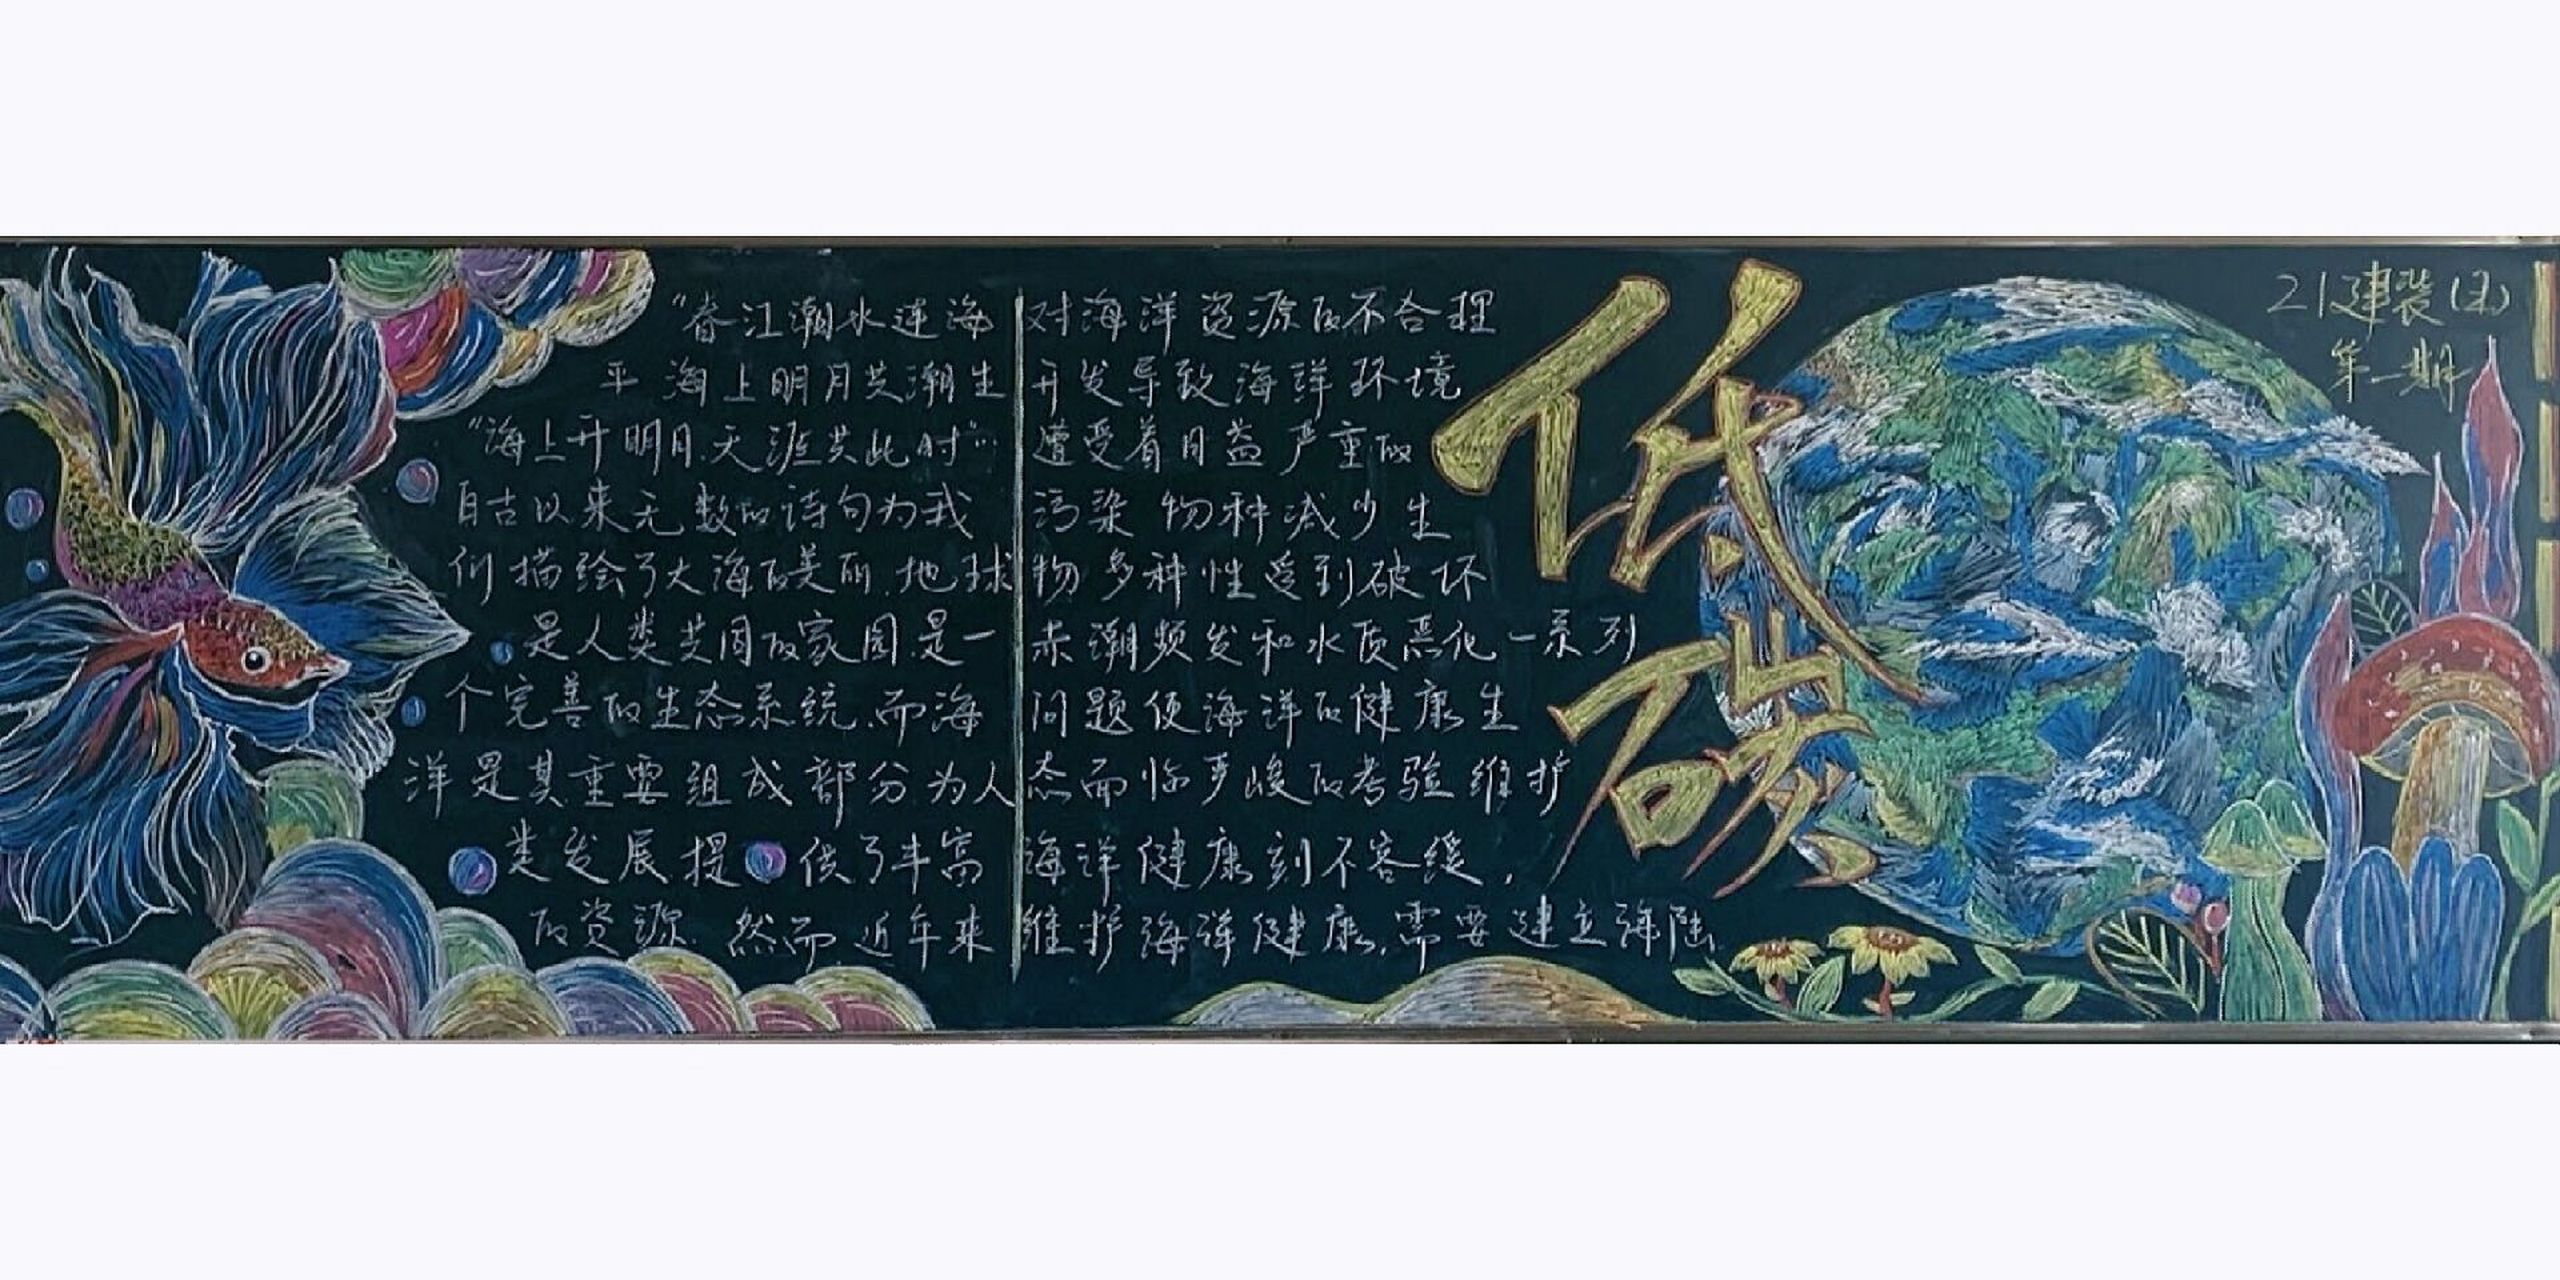 "春江潮水连海
平 海上明月共潮生
"海上升明月.天涯共此时"…
自古以来无数的诗句为我
们描绘了大海的美丽.地球
是人类共同的家园.是一
个完善的生态系统.而海
洋是其重要组成部分为人
类发展提供了丰富
的资源.然而.近年来
对海洋资源的不合理
开发导致海洋环境
遭受着日益严重的
污染 物种减少 生
物多种性受到破坏
赤潮频发和水质恶化一系列
问题使海洋的健康生
态而临严峻的考验 维护
海洋健康刻不容缓,
维护海洋健康.需要建立海陆
低
碳
21建装
第一期